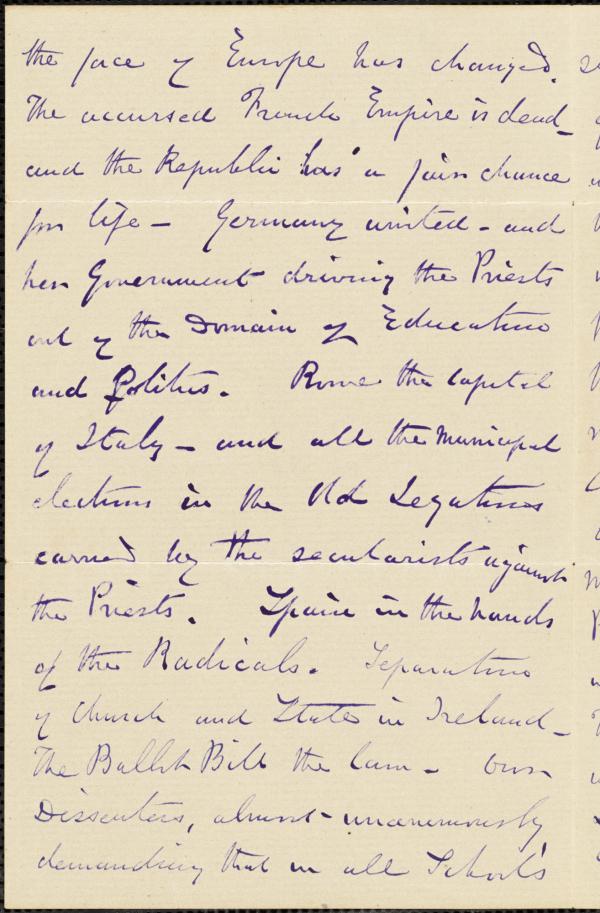 the face of Europe has changed.
The accursed French Empire is dead –
and the Republic has a fair chance
for life – Germany united – and
her Government driving the Priests
out of the Domain of Education
and Politics. Rome the capital
of Italy – and all the municipal
elections in the Old Legations
carried by the secularists against
the Priests. Spain in the hands
of the Radicals. Separation
of Church and State in Ireland –
The Ballot Bill the law – Our
Dissenters, almost – unanimously
demanding that in all Schools